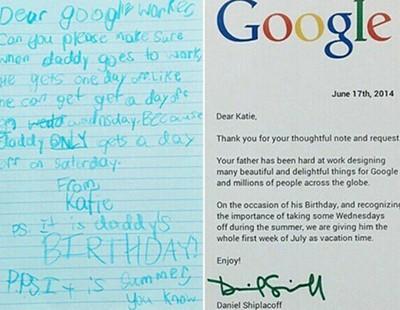 Dear google worker,
Can you please make sure
when daddy goes to work,
he gets one day off. Like
he can get get a day off
on wednsday. Because
daddy ONLY gets a day
off on saturday.
From,
Katie
P.S. It is daddy's
BIRTHDAY!
P.P.S It is summer,
you know
Google
June 17th, 2014
Dear Katie,
Thank you for your thoughtful note and request.
Your father has been hard at work designing
many beautiful and delightful things for Google
and millions of people across the globe.
On the occasion of his Birthday, and recognizing
the importance of taking some Wednesdays
off during the summer, we are giving him the
whole first week of July as vacation time.
Enjoy!
Daniel Shiplacoff